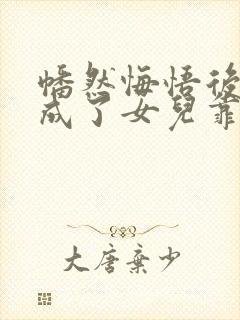 幡然悔悟後
成了女兒靠
大唐棄少